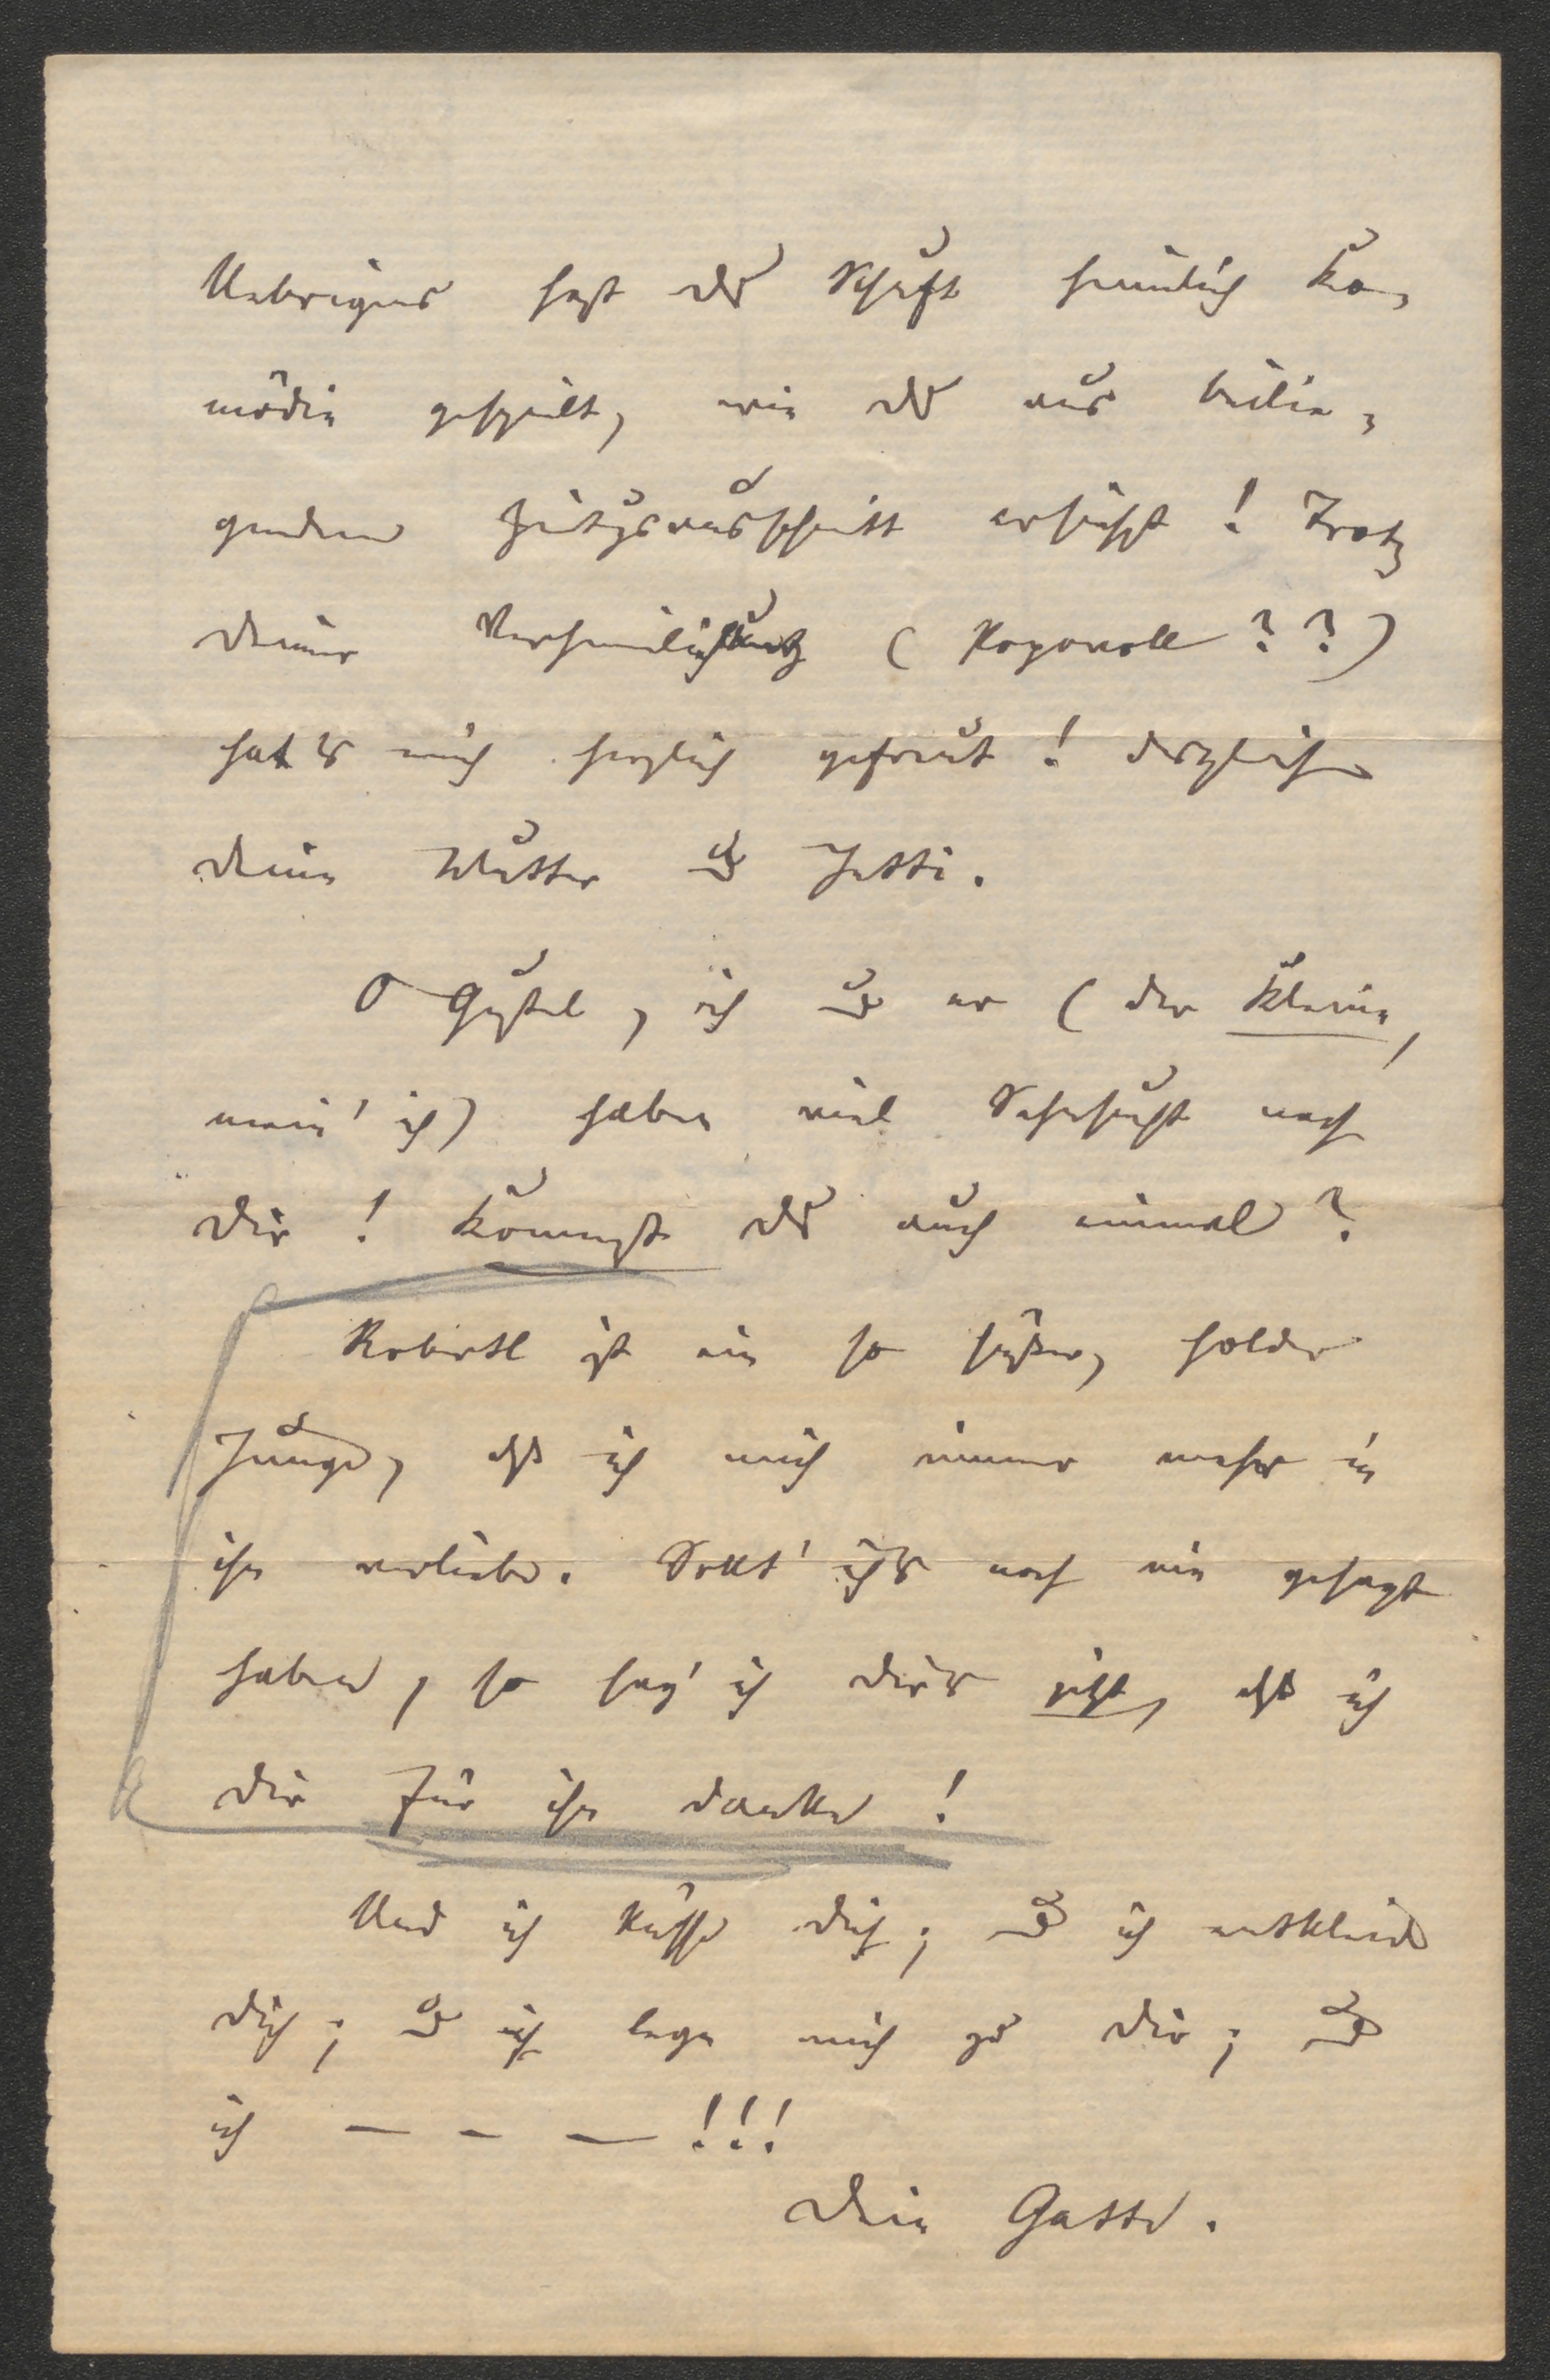 Uebrigens hast du Schuft heimlich Ko-
mödie gespielt, wie du aus beilie-
gendem Zeitgsausschnitt ersiehst! Trotz
deiner Verheimlichung (
??)
hat's mich herzlich gefreut! desgleichen
deine Mutter u Jetti.
O Gustel, ich u er (der Kleine,
mein' ich) haben viel Sehnsucht nach
dir! Kommst du auch einmal?
Robertl ist ein so süßer, holder
Junge, daß ich mich immer mehr in
ihn verliebe. Sollt' ich's noch nie gesagt
haben, so sag' ich dir's jetzt, daß ich
dir für ihn danke!
Und ich küsse dich; u ich entkleide
dich; u ich lege mich zu dir; u
ich — — — !!!
Dein Gatte.